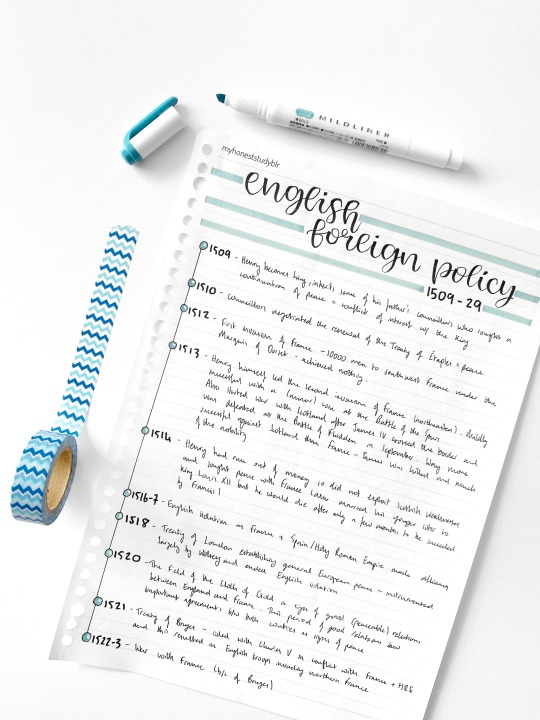 MILDLINER
myhoneststudyblr
english
foreign policy
1509 - 29
1509 - Henry becomes king, inherits some of his father's councillors who sought a
continuation of peace = conflict of interest w/ the king
1510 - councillors negotiated the renewal of the Treaty of Etaples = peace
1512 - First invasion of France - 10000 men to southwest France under the
Marquis of Dorset - achieved nothing.
1513 - Henry himself led the second invasion of France (northeastern). Mildly
successful with a (minor) win at the Battle of the Spurs
Also started war with Scotland after James IV crossed the border and
was defeated at the Battle of Flodden in September. Way more
successful against Scotland than France - James was killed and much
of the nobility
1514 - Henry had run out of money so did not exploit Scottish weaknesses
and sought peace with France (also married his younger sister to
King Louis XII but he would die after only a few months to be succeeded
by Francis)
1516-7 - English isolation as France + Spain/Holy Roman Empire made alliances
1518 - Treaty of London establishing general European peace - instrumented
largely by Wolsey and ended English isolation
1520 - The Field of the Cloth of Gold a sign of good (peaceable) relations
between England and France. This period of good relations saw
important agreements b/w both countries as signs of peace
1521 - Treaty of Bruges - sided with Charles V in conflict with France + HRE
and this resulted in English troops invading northern France
1522-3 - War with France (b/c of Bruges)